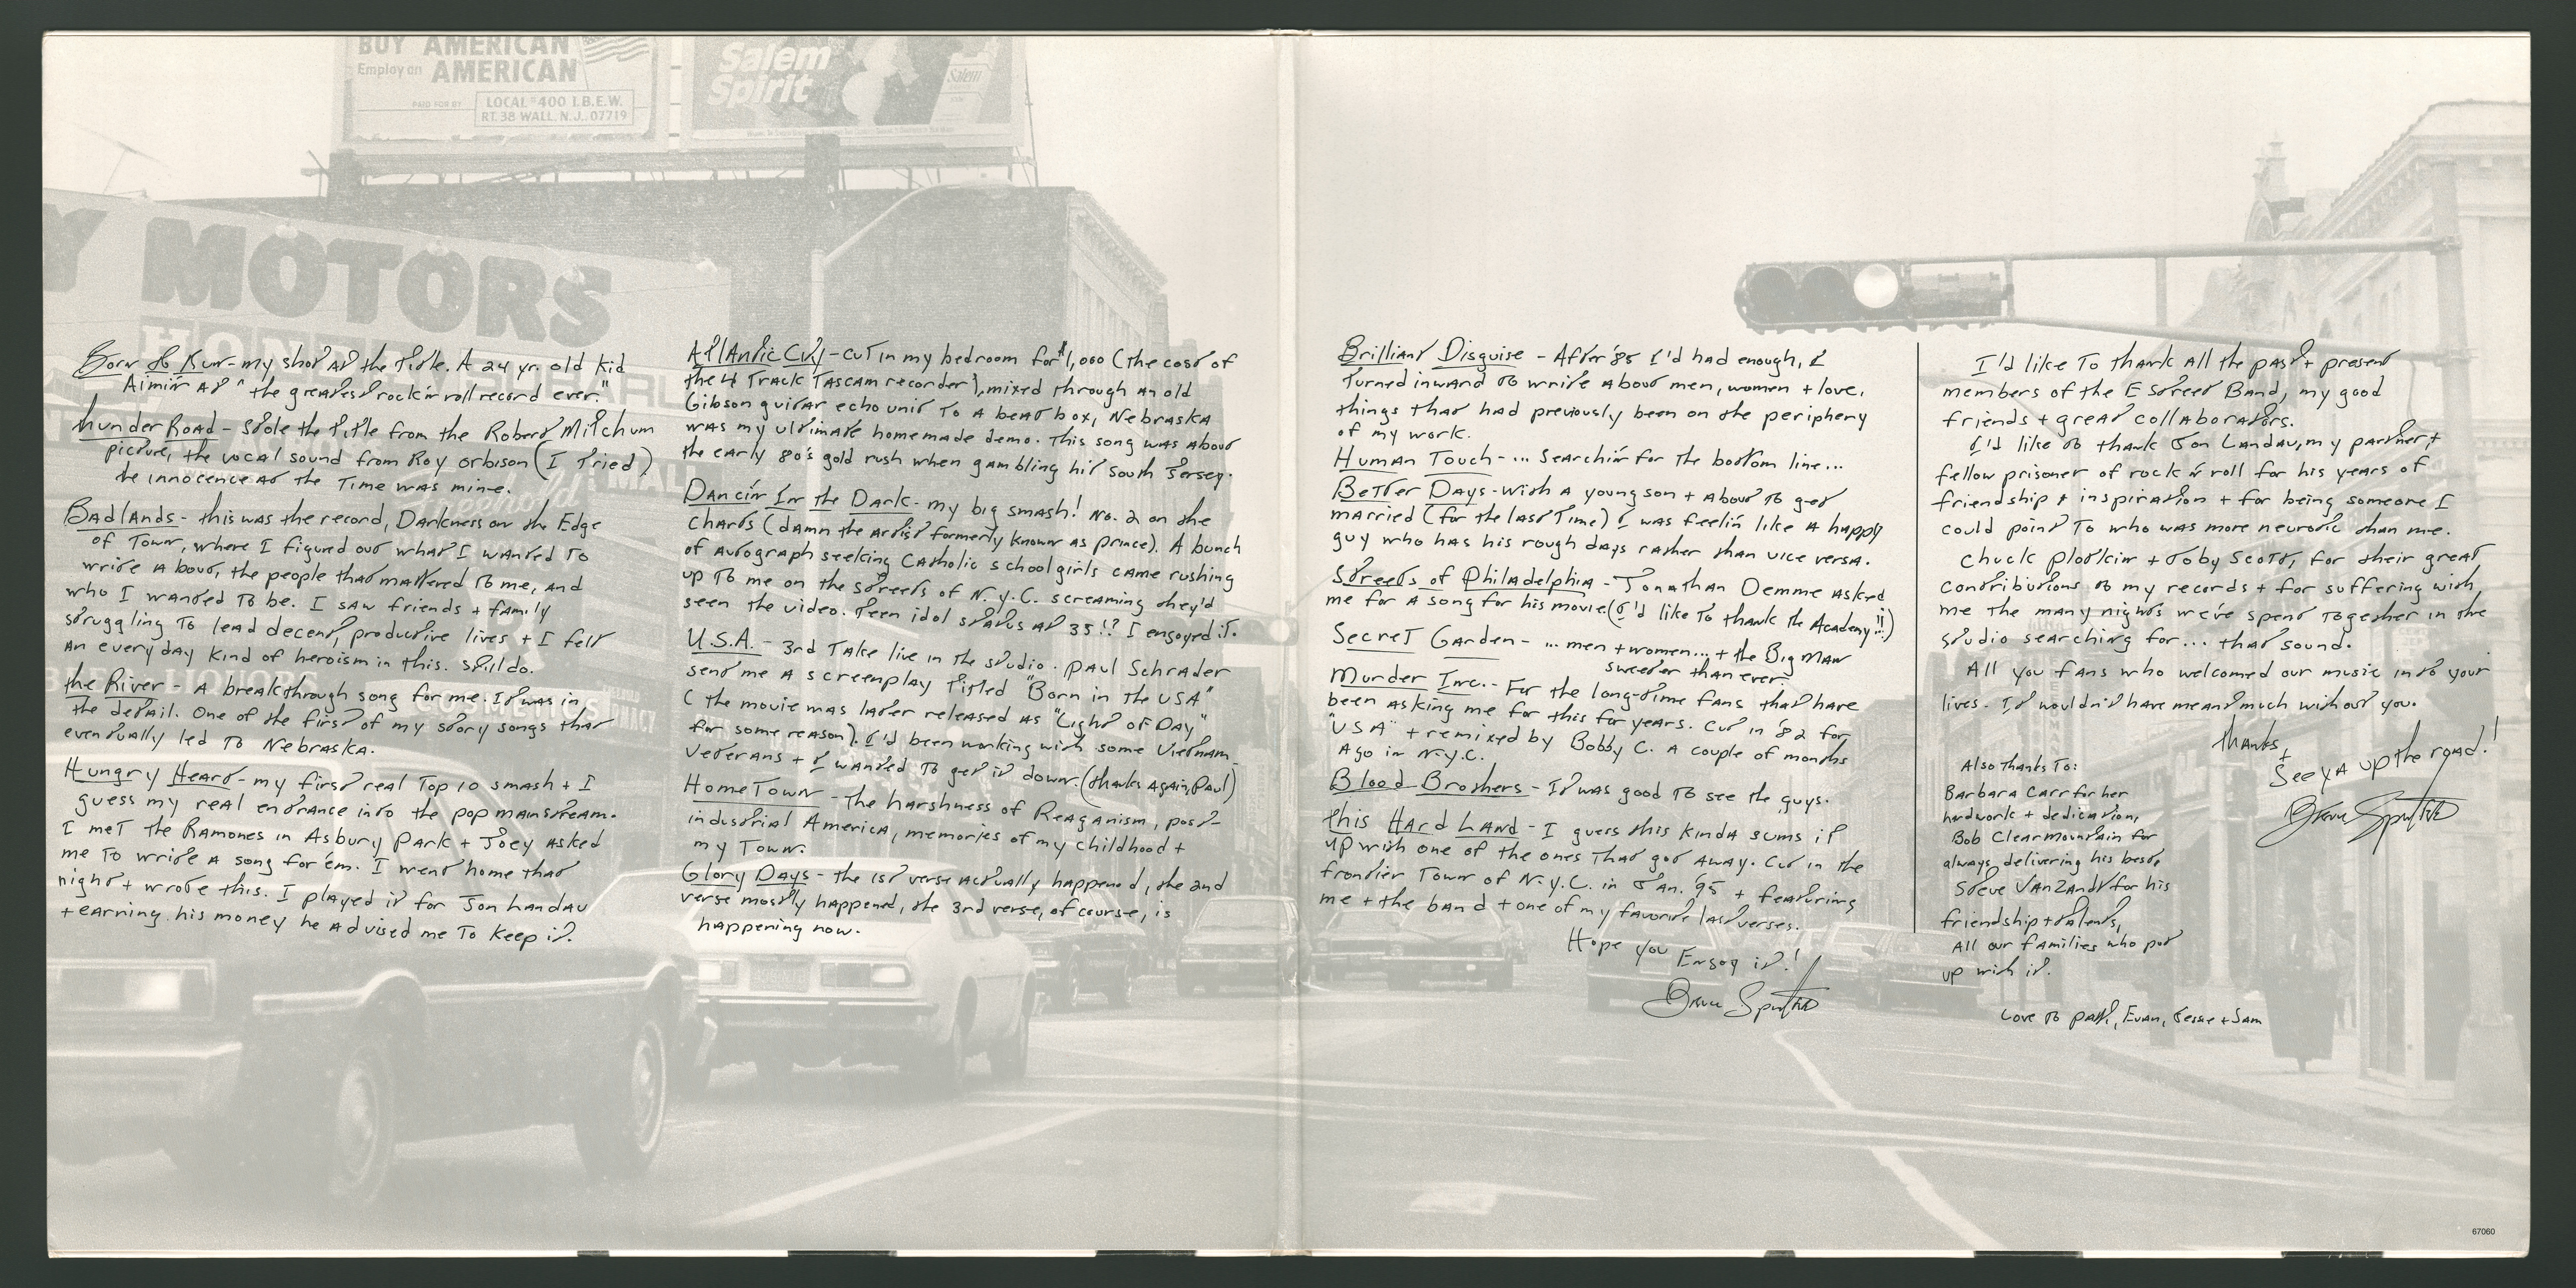 BUY AMERICAN
Employ an AMERICAN
PAID FOR BY LOCAL #400 I.B.E.W.
RT. 38 WALL, N.J. 07719
Salem
Spirit
Salem
Y MOTORS
Born to Run - my shot at the title. A 24 yr. old kid
Aimin' at "the greatest rock'n roll record ever."
thunder Road - Stole the title from the Robert Mitchum
picture, the vocal sound from Roy Orbison (I Tried)
the innocence at the Time was mine.
Badlands - this was the record, Darkness on the Edge
of Town, where I figured out what I wanted to
write about, the people that mattered to me, and
who I wanted to be. I saw friends + family
struggling to lead decent, productive lives + I felt
an everyday kind of heroism in this. Still do.
the River - A breakthrough song for me. It was in
the detail. One of the first of my story songs that
eventually led to Nebraska.
Hungry Heart - my first real Top 10 smash + I
guess my real entrance into the pop mainstream.
I met the Ramones in Asbury Park + Joey asked
me to write a song for 'em. I went home that
night + wrote this. I played it for Jon Landau
+ earning his money he advised me to keep it.
Atlantic City - cut in my bedroom for $1,000 (the cost of
the 4 Track Tascam recorder), mixed through an old
Gibson guitar echo unit to a beat box, Nebraska
was my ultimate homemade demo. This song was about
the early 80's gold rush when gambling hit South Jersey.
Dancin' In the Dark - my big smash! No. 2 on the
charts (damn the artist formerly known as prince). A bunch
of autograph seeking Catholic schoolgirls came rushing
up to me on the streets of N.Y.C. screaming they'd
seen the video. Teen idol status at 35!? I enjoyed it.
U.S.A. - 3rd Take live in the studio. Paul Schrader
send me a screenplay titled "Born in the USA"
(the movie was later released as "Light of Day"
for some reason). I'd been working with some Vietnam
Veterans + I wanted to get it down. (thanks again, Paul)
HomeTown - the harshness of Reaganism, post-
industrial America, memories of my childhood +
my Town.
Glory Days - the 1st verse actually happened, the 2nd
verse mostly happened, the 3rd verse, of course, is
happening now.
Brilliant Disguise - After '85 I'd had enough, I
turned inward to write about men, women + love,
things that had previously been on the periphery
of my work.
Human Touch - ... Searchin' for the bottom line...
Better Days - With a young son + about to get
married (for the last Time) I was feelin' like a happy
guy who has his rough days rather than vice versa.
Streets of Philadelphia - Jonathan Demme asked
me for a song for his movie (I'd like to thank the Academy!!...)
Secret Garden - ... men + women... + the Big Man
sweeter than ever.
Murder Inc. - For the long-time fans that have
been asking me for this for years. Cut in '82 for
"USA" + remixed by Bobby C. a couple of months
ago in N.Y.C.
Blood Brothers - It was good to see the guys.
this Hard Land - I guess this kinda sums it
up with one of the ones that got away. Cut in the
frontier town of N.Y.C. in Jan. '95 + featuring
me + the band + one of my favorite last verses.
Hope you Enjoy it!
Bruce Springsteen
I'd like to thank all the past + present
members of the E Street Band, my good
friends + great collaborators.
I'd like to thank Jon Landau, my partner +
fellow prisoner of rock 'n' roll for his years of
friendship + inspiration + for being someone I
could point to who was more neurotic than me.
Chuck Plotkin + Toby Scott, for their great
contributions to my records + for suffering with
me the many nights we've spent together in the
studio searching for... that sound.
All you fans who welcomed our music into your
lives. It wouldn't have meant much without you.
thanks,
+
See ya up the road!
Bruce Springsteen
Also thanks to:
Barbara Carr for her
hardwork + dedication,
Bob Clearmountain for
always delivering his best,
Steve Van Zandt for his
friendship + talents,
All our families who put
up with it.
Love to Patti, Evan, Jessie + Sam
67060